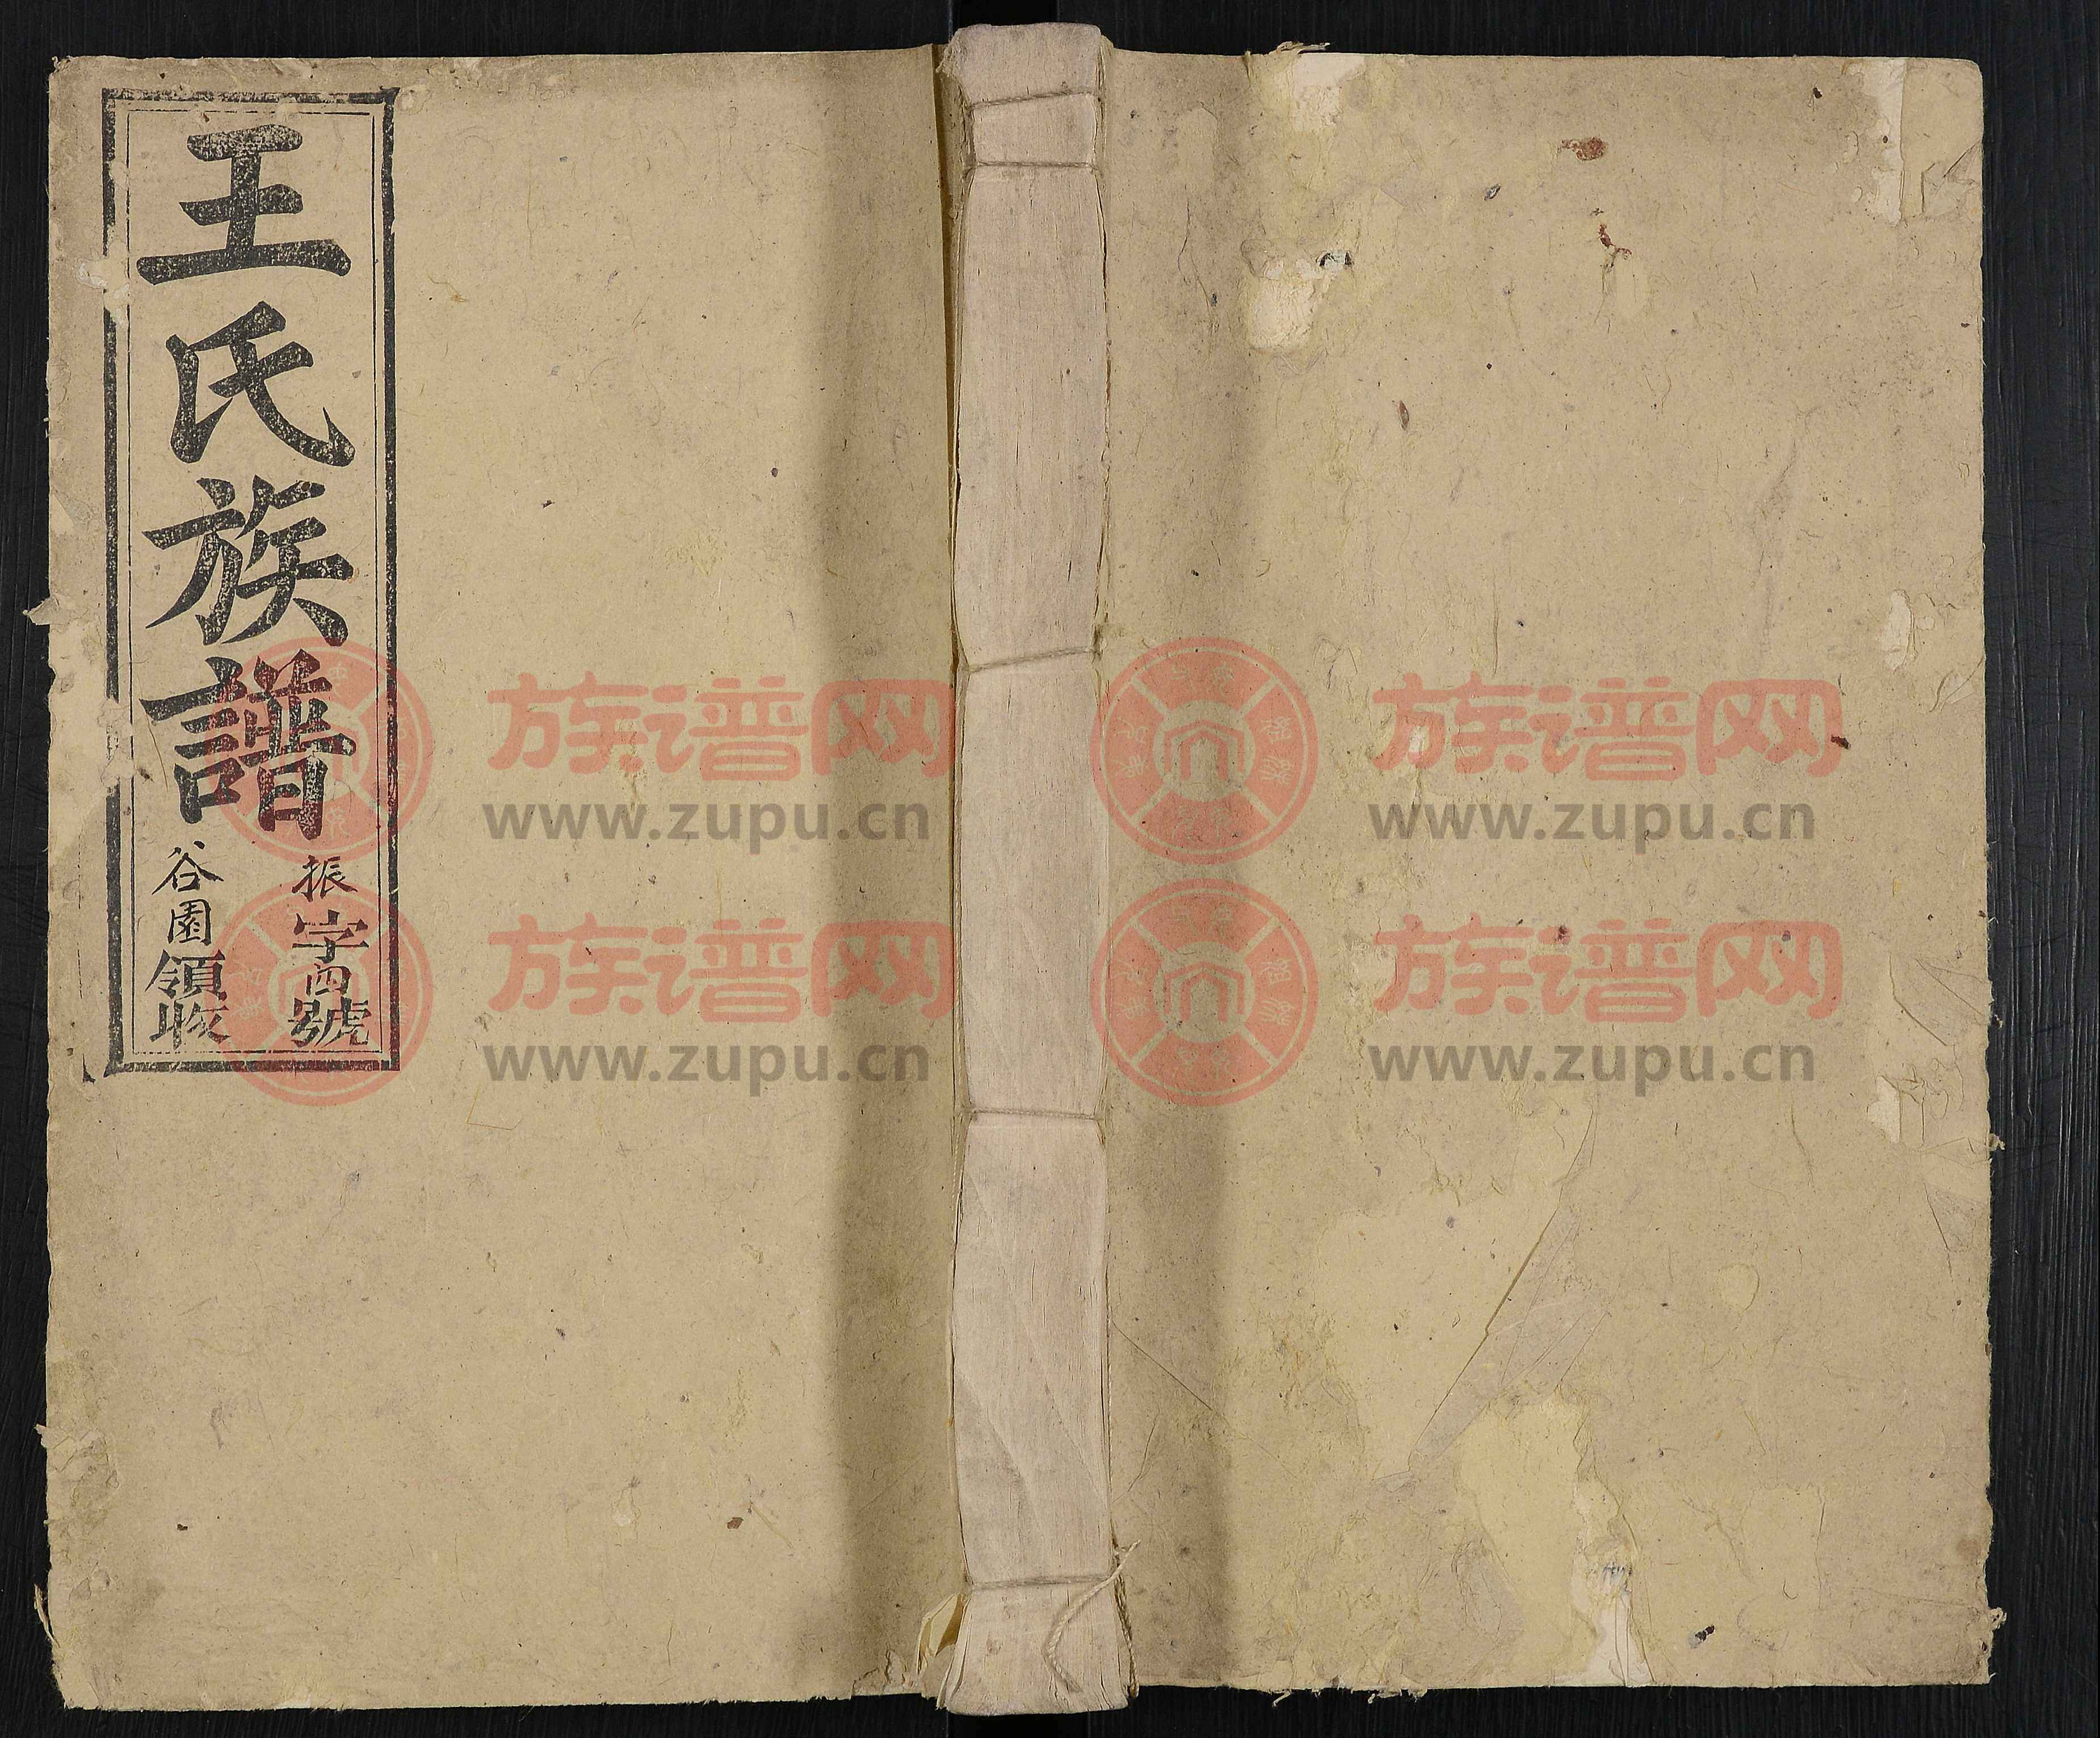 王氏族譜
振字四號
谷園領收
族谱网
www.zupu.cn
族谱网
www.zupu.cn
族谱网
www.zupu.cn
族谱网
www.zupu.cn